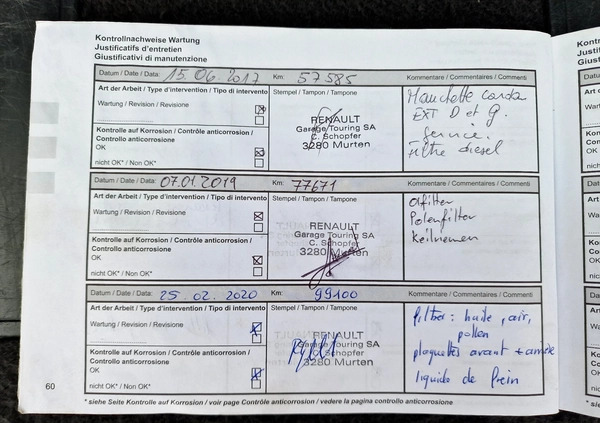 Kontrollnachweise Wartung
Justificatifs d'entretien
Giustificativi di manutenzione
Datum / Date / Data: 15.06.2017 Km: 57585 Kommentare / Commentaires / Commenti
Art der Arbeit / Type d'intervention / Tipo di intervento Stempel / Tampon / Tampone
Wartung / Revision / Revisione
Kontrolle auf Korrosion / Contrôle anticorrosion /
Controllo anticorrosione
OK
nicht OK* / Non OK* /
RENAULT
Garage Touring SA
C. Schopfer
3280 Murten
Manchette cardan
EXT D et G.
Service.
Filtre diesel
Datum / Date / Data: 07.01.2019 Km: 77671 Kommentare / Commentaires / Commenti
Art der Arbeit / Type d'intervention / Tipo di intervento Stempel / Tampon / Tampone
Wartung / Revision / Revisione
Kontrolle auf Korrosion / Contrôle anticorrosion /
Controllo anticorrosione
OK
nicht OK* / Non OK*
RENAULT
Garage Touring SA
C. Schopfer
3280 Murten
Ölfilter
Polenfilter
Keilriemen
Datum / Date / Data: 25.02.2020 Km: 99100 Kommentare / Commentaires / Commenti
Art der Arbeit / Type d'intervention / Tipo di intervento Stempel / Tampon / Tampone
Wartung / Revision / Revisione
Kontrolle auf Korrosion / Contrôle anticorrosion /
Controllo anticorrosione
OK
nicht OK* / Non OK*
RENAULT
Garage Touring SA
C. Schopfer
3280 Murten
filtre: huile, air,
pollen
plaquettes avant + arrière
liquide de frein
60
* siehe Seite Kontrolle auf Korrosion / voir page Contrôle anticorrosion / vedere la pagina controllo anticorrosione